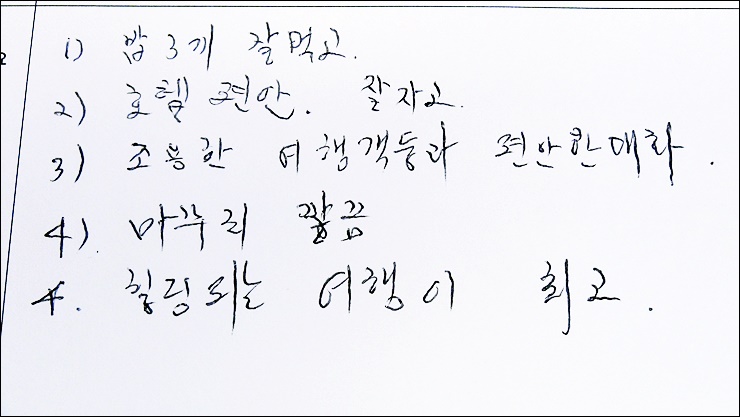 1) 밥 3끼 잘먹고.
2) 호텔 편안. 잘자고.
3) 조용한 여행객들과 편안한대화.
4) 마무리 깔끔
4. 힐링되는 여행이 최고.